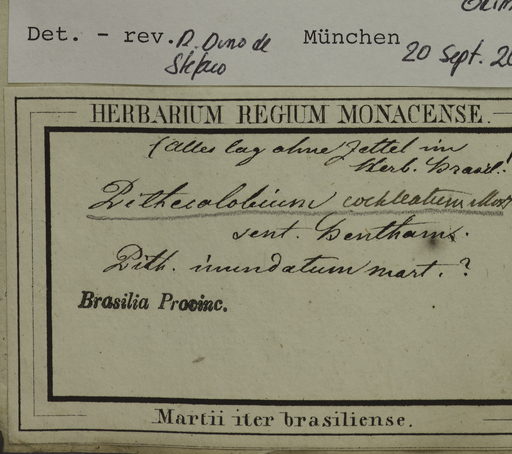 Det. - rev. München
20 Sept. 20
HERBARIUM REGIUM MONACENSE.
(Alles lag ohne Zettel im
Herb. Brasil.
Pithecolobium cochleatum Mart
sent. Benthami.
Pith. inundatum mart. ?
Brasilia Provinc.
Martii iter brasiliense.